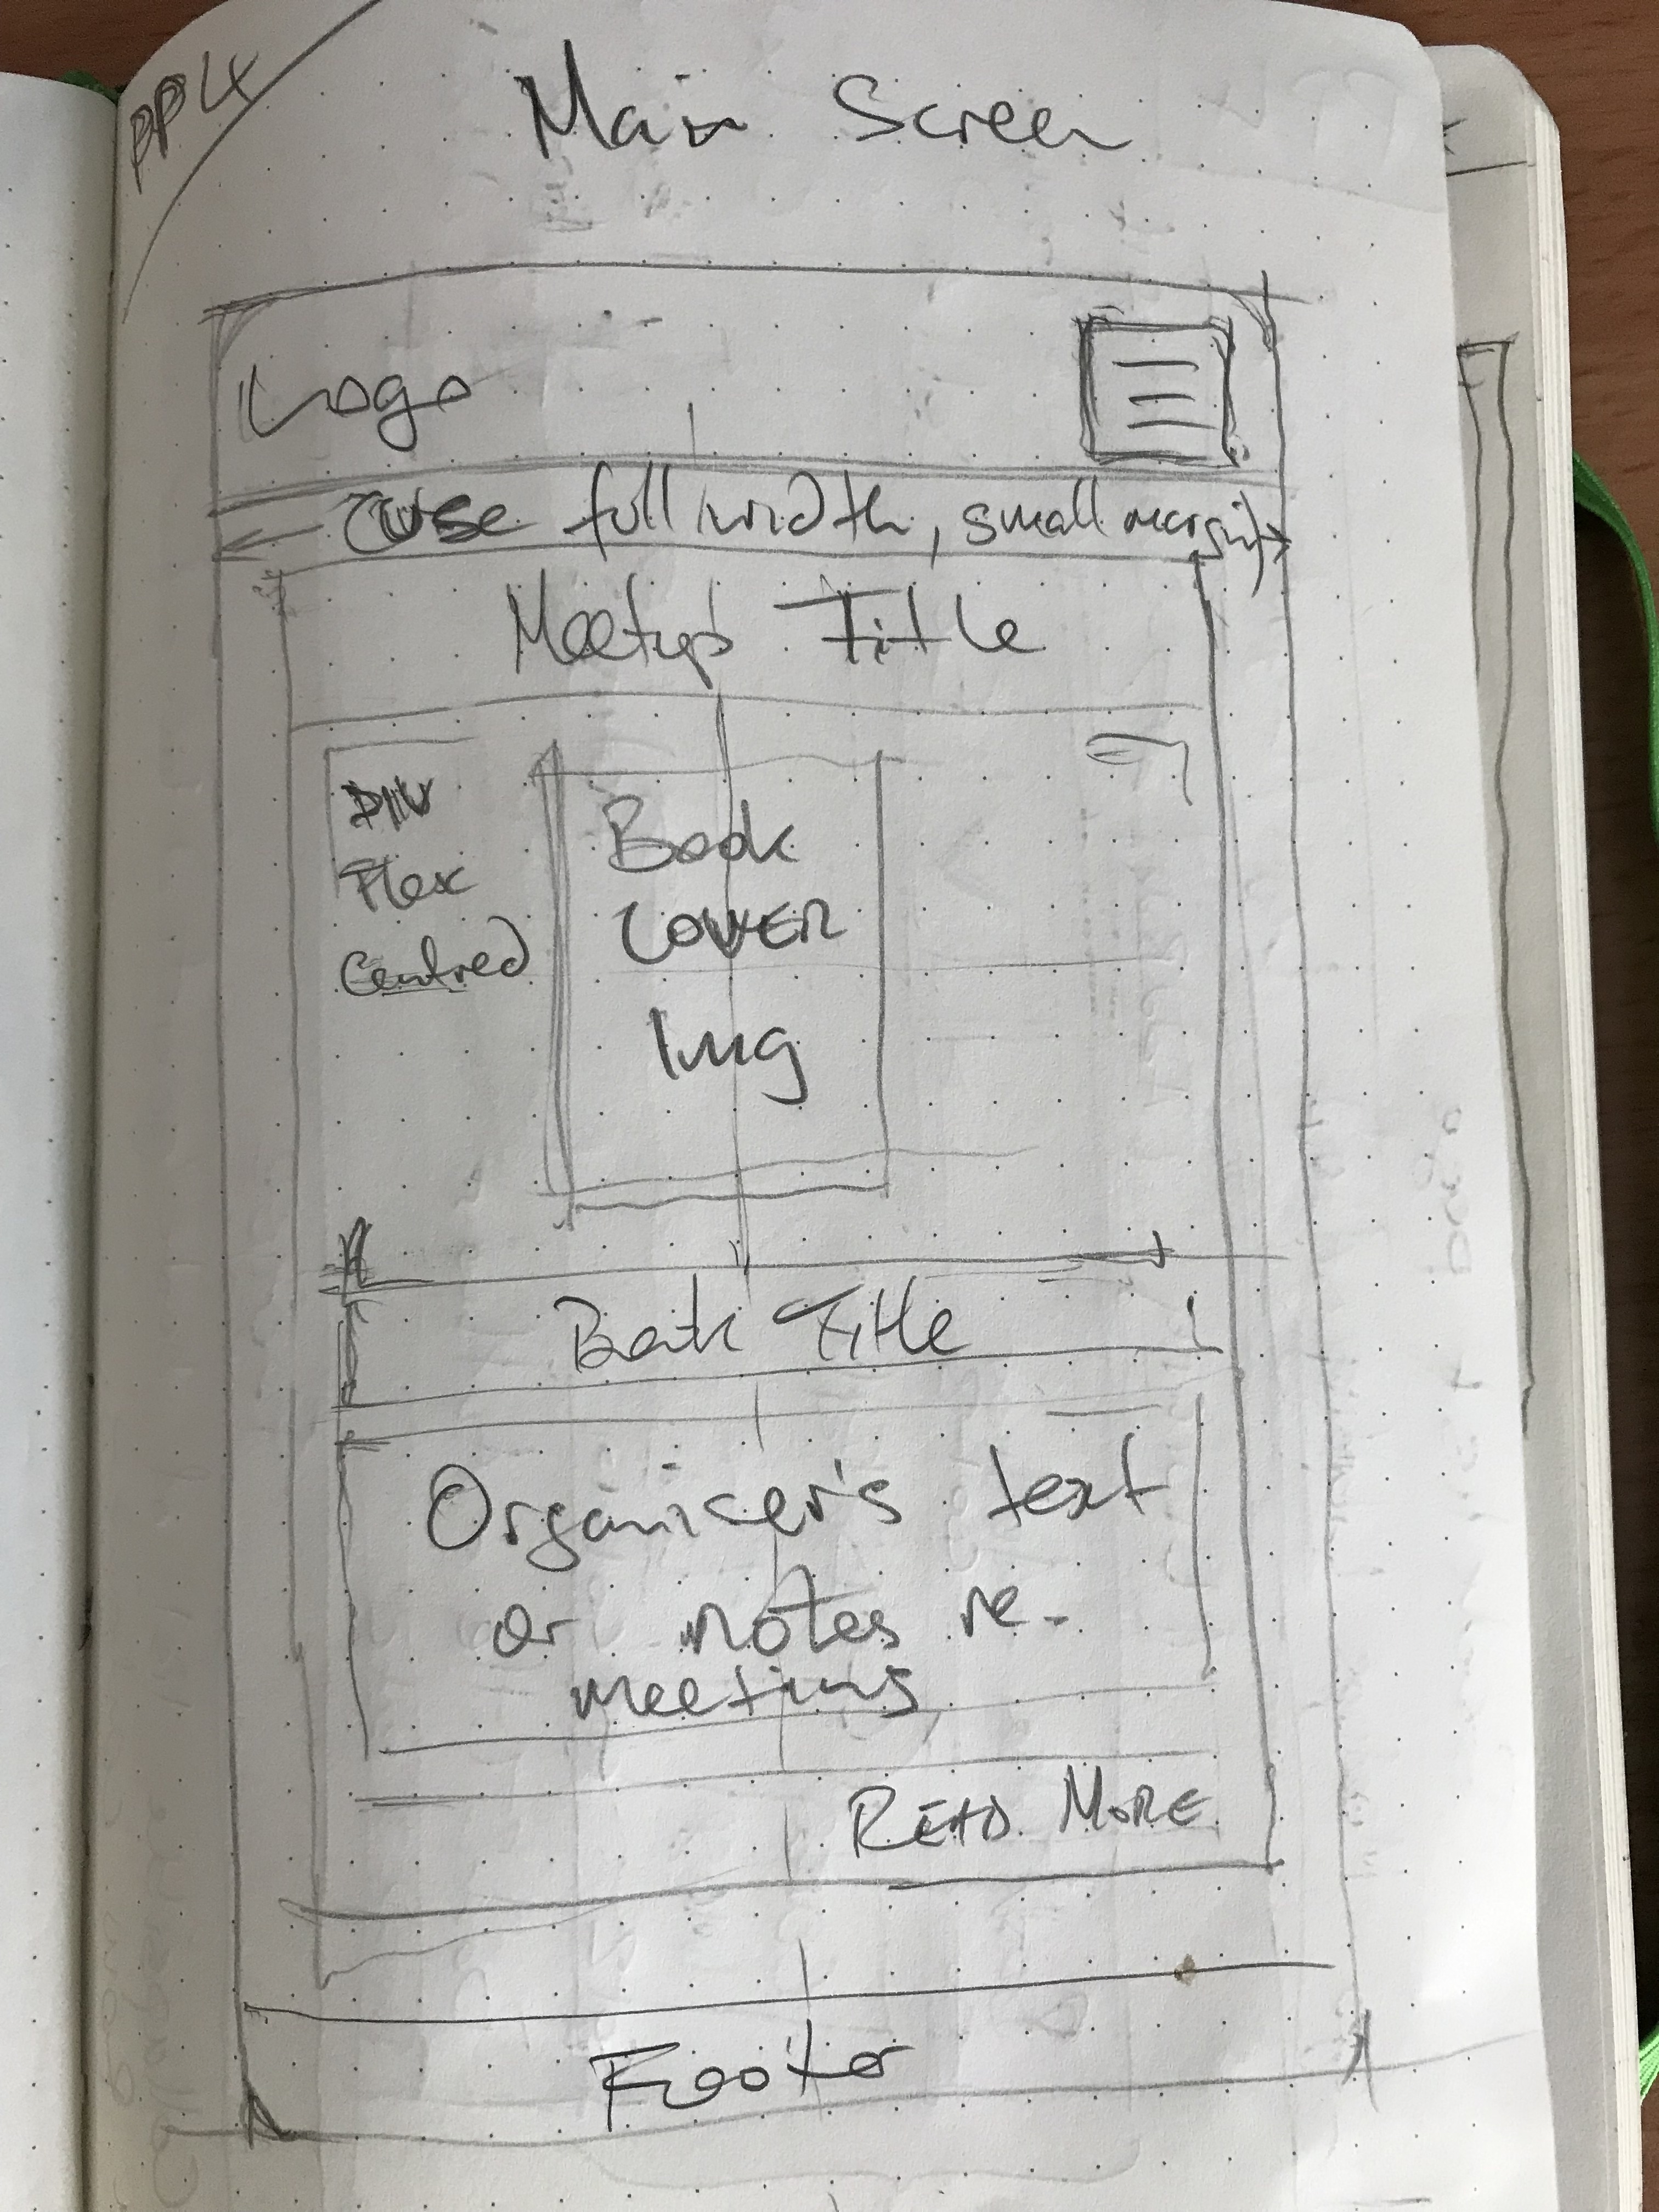 PP4
Main Screen
Logo
use full width, small margin
Meetup's Title
DIV
Flex
Centred
Book
COVER
Img
Book Title
Organiser's text
or notes re-
meeting
READ MORE
Footer